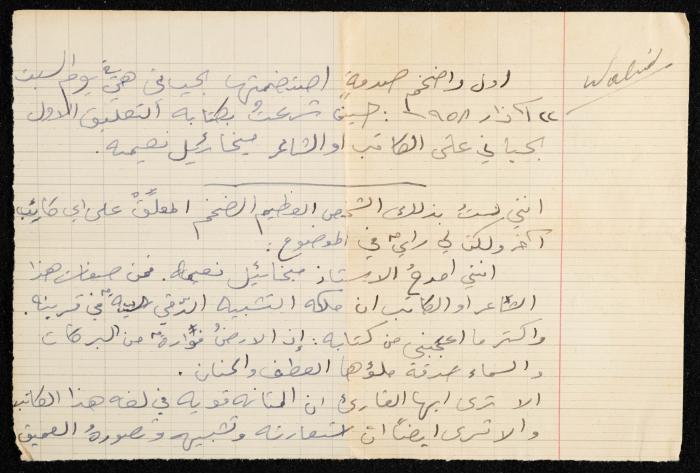 Walid
اول واضخم صدمةٍ اصتضمتها بحياتي هي في يوم السبت
٢٢ آذار ١٩٥٨: حين شرعتُ بكتابة التعليق الاول
بحياتي على الكاتب او الشاعر ميخائيل نعيمه.
انني لستُ بذلك الشخص العظيم الضخم المعلّقُ على اي كاتبٍ
آخر ولكن لي رأي في الموضوع:
انني امدحُ الاستاذ ميخائيل نعيمه. فمن صفات هذا
الشاعر او الكاتب ان ملكه التشبيه الرّقي في قرينه.
واكثر ما اعجبني من كتابه: إن الارضُ فوّارةٌ من البركات
والسماء غدقة ملؤها العطف والحنان.
الا ترى ايها القارئ ان المتانه قويه في لغه هذا الكاتب
والا ترى ايضاً ان استعارته وتشبيهه وتصورهُ العميق